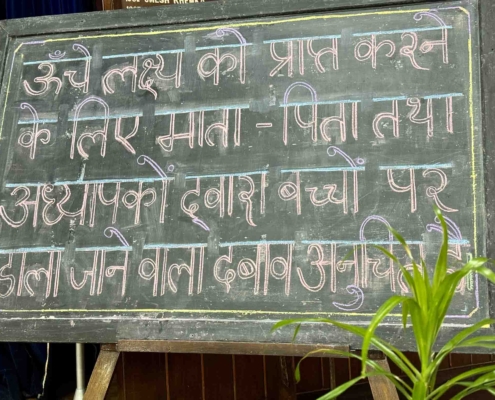 ऊँचे लक्ष्य को प्राप्त करने
के लिए माता - पिता तथा
अध्यापकों दवारा बच्चो पर
डाला जाने वाला दबाव अनुचित है